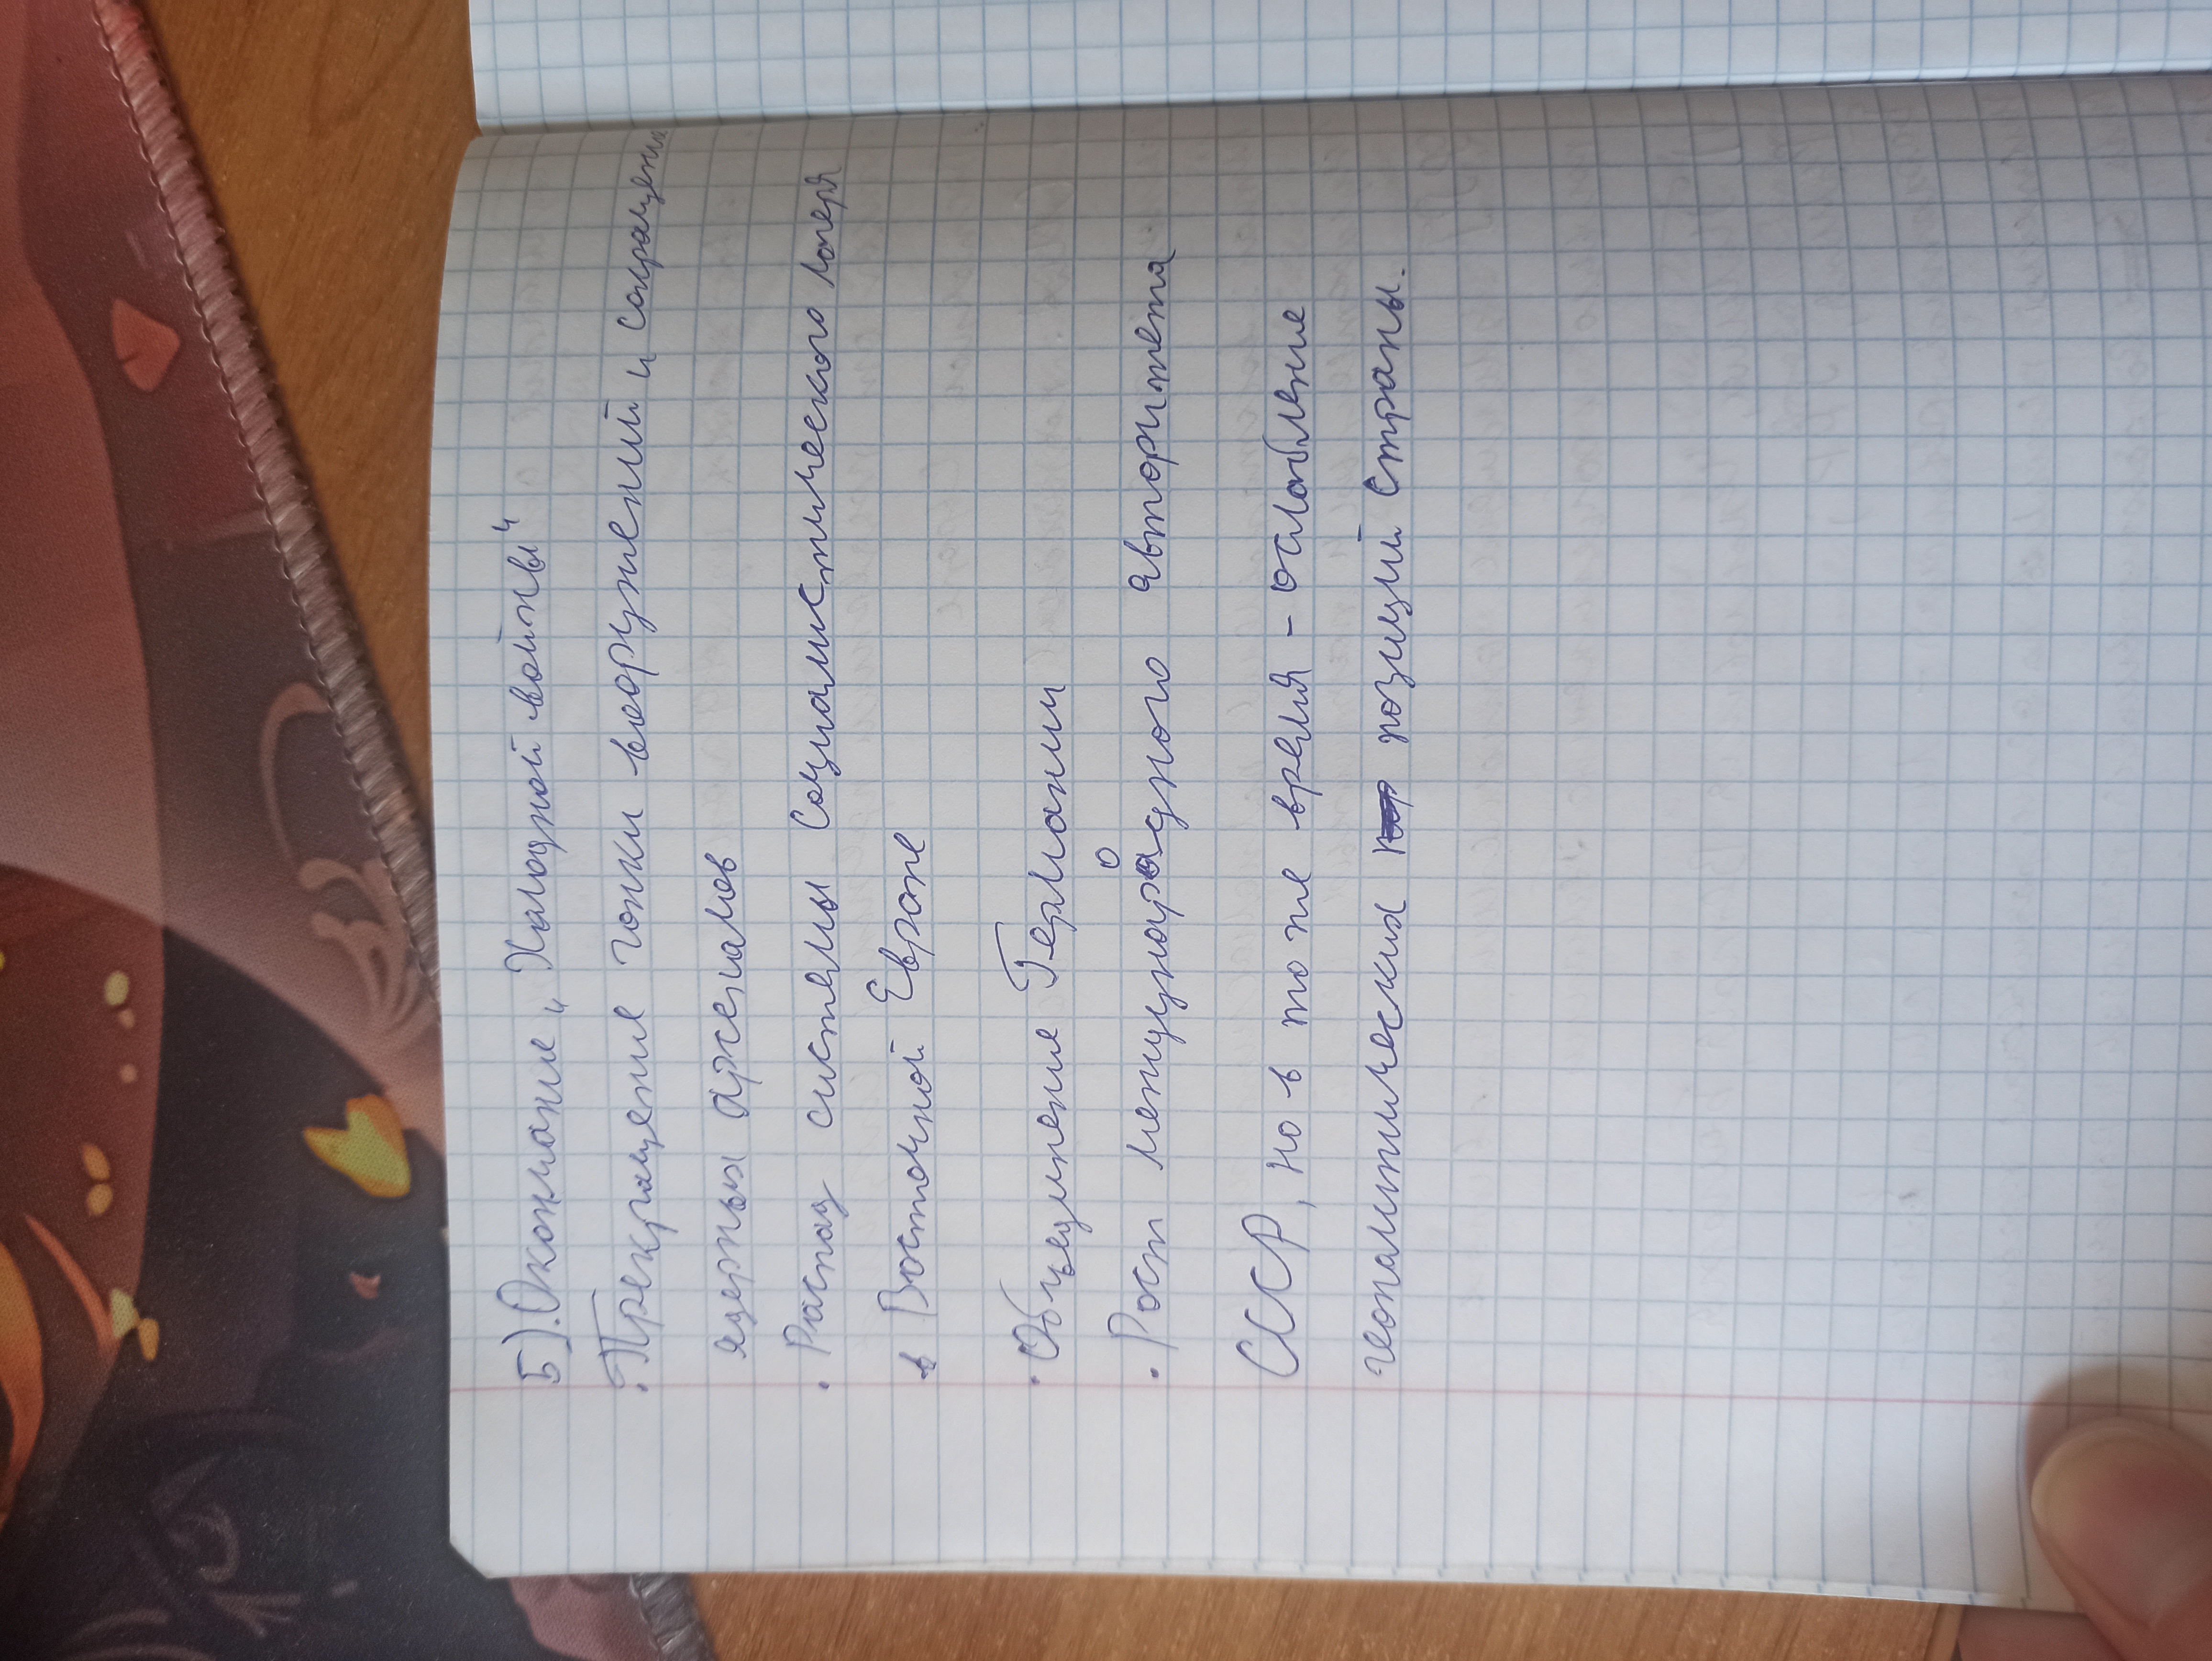 5). Окончание „Халодной войны"
· Прекращение гонки вооружений и сокращение
ядерных арсеналов
· Распад системы Социалистического лагеря
в Восточной Европе
· Объединение Германии
· Рост международного авторитета
СССР, но в то же время - ослабление
геополитических позиций Страны.